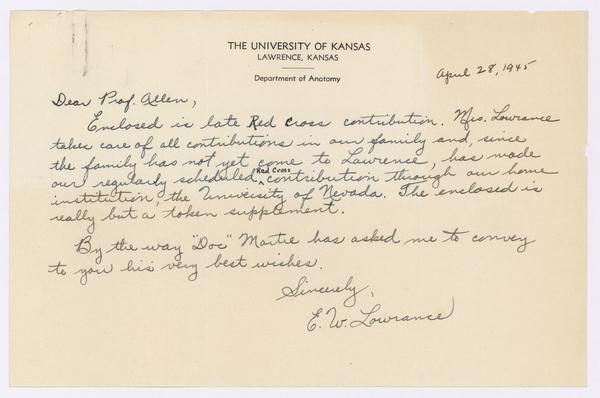 THE UNIVERSITY OF KANSAS
LAWRENCE, KANSAS
Department of Anatomy
April 28, 1945
Dear Prof. Allen,
Enclosed is late Red Cross contribution. Mrs. Lowrance
takes care of all contributions in our family and, since
the family has not yet come to Lawrence, has made
our regularly scheduled Red Cross contribution through our home
institution, the University of Nevada. The enclosed is
really but a token supplement.
By the way "Doc" Martie has asked me to convey
to you his very best wishes.
Sincerely,
E. W. Lowrance